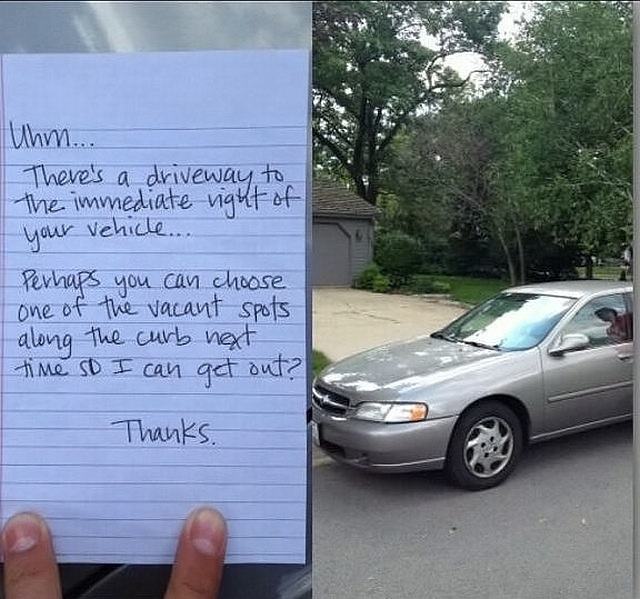 Uhm...
There's a driveway to
the immediate right of
your vehicle...
Perhaps you can choose
one of the vacant spots
along the curb next
time so I can get out?
Thanks.